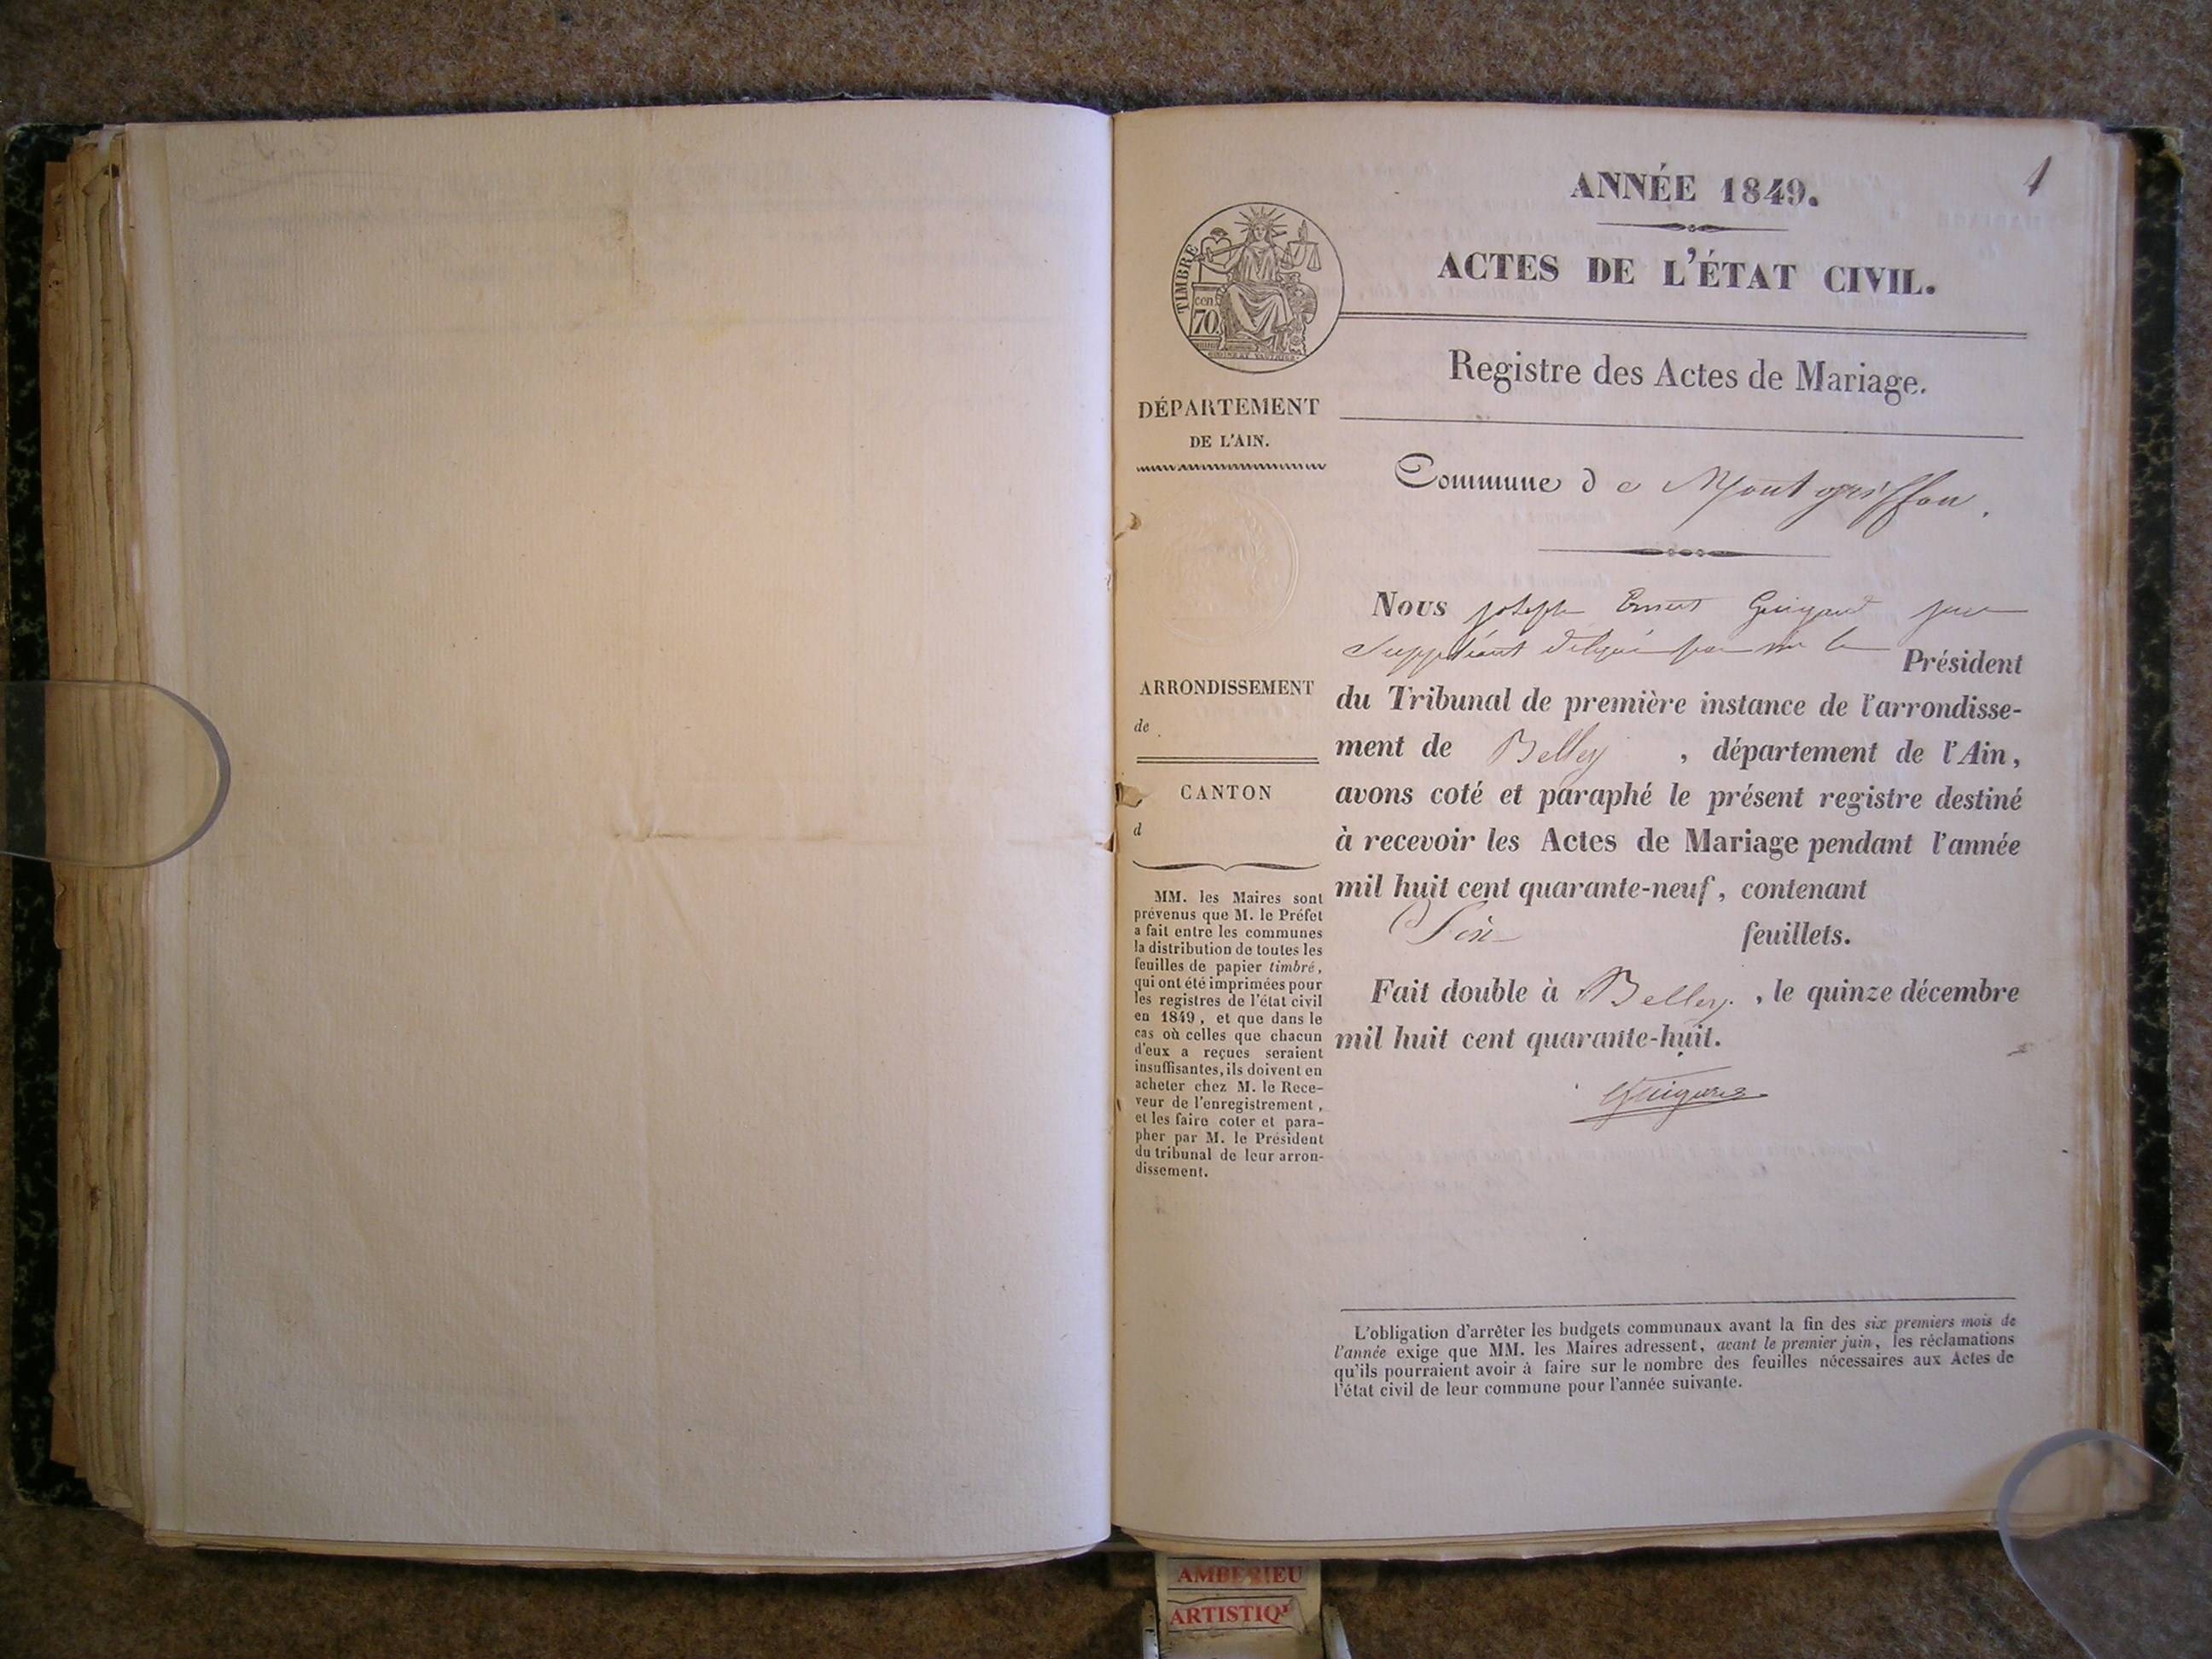 1
ANNÉE 1849.
ACTES DE L'ÉTAT CIVIL.
TIMBRE
cen.
70
Registre des Actes de Mariage.
DÉPARTEMENT
DE L'AIN.
Commune de Montgriffon.
Nous joseph Ernest juge
suppléant délégué par mr le Président
du Tribunal de première instance de l'arrondisse-
ment de Belley, département de l'Ain,
avons coté et paraphé le présent registre destiné
à recevoir les Actes de Mariage pendant l'année
mil huit cent quarante-neuf, contenant
Six feuillets.
Fait double à Belley, le quinze décembre
mil huit cent quarante-huit.
ARRONDISSEMENT
de
CANTON
d
MM. les Maires sont
prévenus que M. le Préfet
a fait entre les communes
la distribution de toutes les
feuilles de papier timbré,
qui ont été imprimées pour
les registres de l'état civil
en 1849, et que dans le
cas où celles que chacun
d'eux a reçues seraient
insuffisantes, ils doivent en
acheter chez M. le Rece-
veur de l'enregistrement,
et les faire coter et para-
pher par M. le Président
du tribunal de leur arron-
dissement.
L'obligation d'arrêter les budgets communaux avant la fin des six premiers mois de
l'année exige que MM. les Maires adressent, avant le premier juin, les réclamations
qu'ils pourraient avoir à faire sur le nombre des feuilles nécessaires aux Actes de
l'état civil de leur commune pour l'année suivante.
AMBERIEU
ARTISTIQU